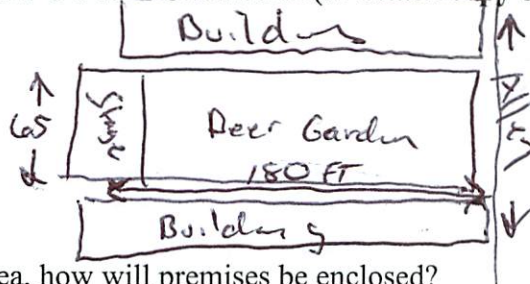 Building
65
Stage
Beer Garden
Alley
180 FT
Building
ea, how will premises be enclosed?